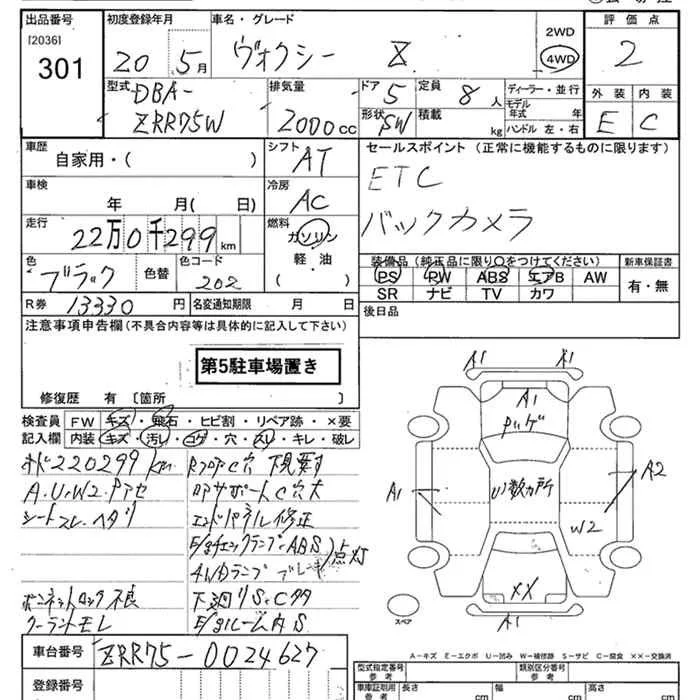 出品番号 初度登録年月 車名・グレード 2WD 評価点
[2036] 301 20 5月 ヴォクシー Z 4WD 2
型式 DBA- ZRR75W 排気量 2000cc ドア 5 定員 8人 ディーラー・並行 外装 内装
形状 SW 積載 kg モデル年式 年 ハンドル 左・右 E C
車歴 自家用・( ) シフト AT セールスポイント (正常に機能するものに限ります)
車検 年 月( 日) 冷房 AC ETC
走行 22万0千299km 燃料 ガソリン バックカメラ
軽・油
( )
色 ブラック 色替 色コード 202 装備品(純正品に限り○をつけてください) 新車保証書
PS PW ABS エアB AW 有・無
SR ナビ TV カワ
R券 13330円 名変通知期限 月 日 後日品
注意事項申告欄(不具合内容等は具体的に記入して下さい)
第5駐車場置き
修復歴 有〔箇所
検査員 FW キズ・飛石・ヒビ割・リペア跡・×要
記入欄 内装 キズ・汚レ・コゲ・穴・スレ・キレ・破レ
220299km C穴
A.U.W2.
シートスレ・ヘタリ エンドパネル修正
E/gチェックランプ・ABS 点灯
4WDランプ
ボンネットロック不良 下廻りS.C
クーラントモレ E/gルーム内S
車台番号 ZRR75-0024627
登録番号
A1 A1
A1
A1
A2
W2
XX
A1
スペア
A－キズ E－エクボ U－凹み W－補修跡 S－サビ C－腐食 ××－交換済
型式指定番号 参考 類別区分番号 参考
車庫証明用 参考 長さ cm 幅 cm 高さ cm